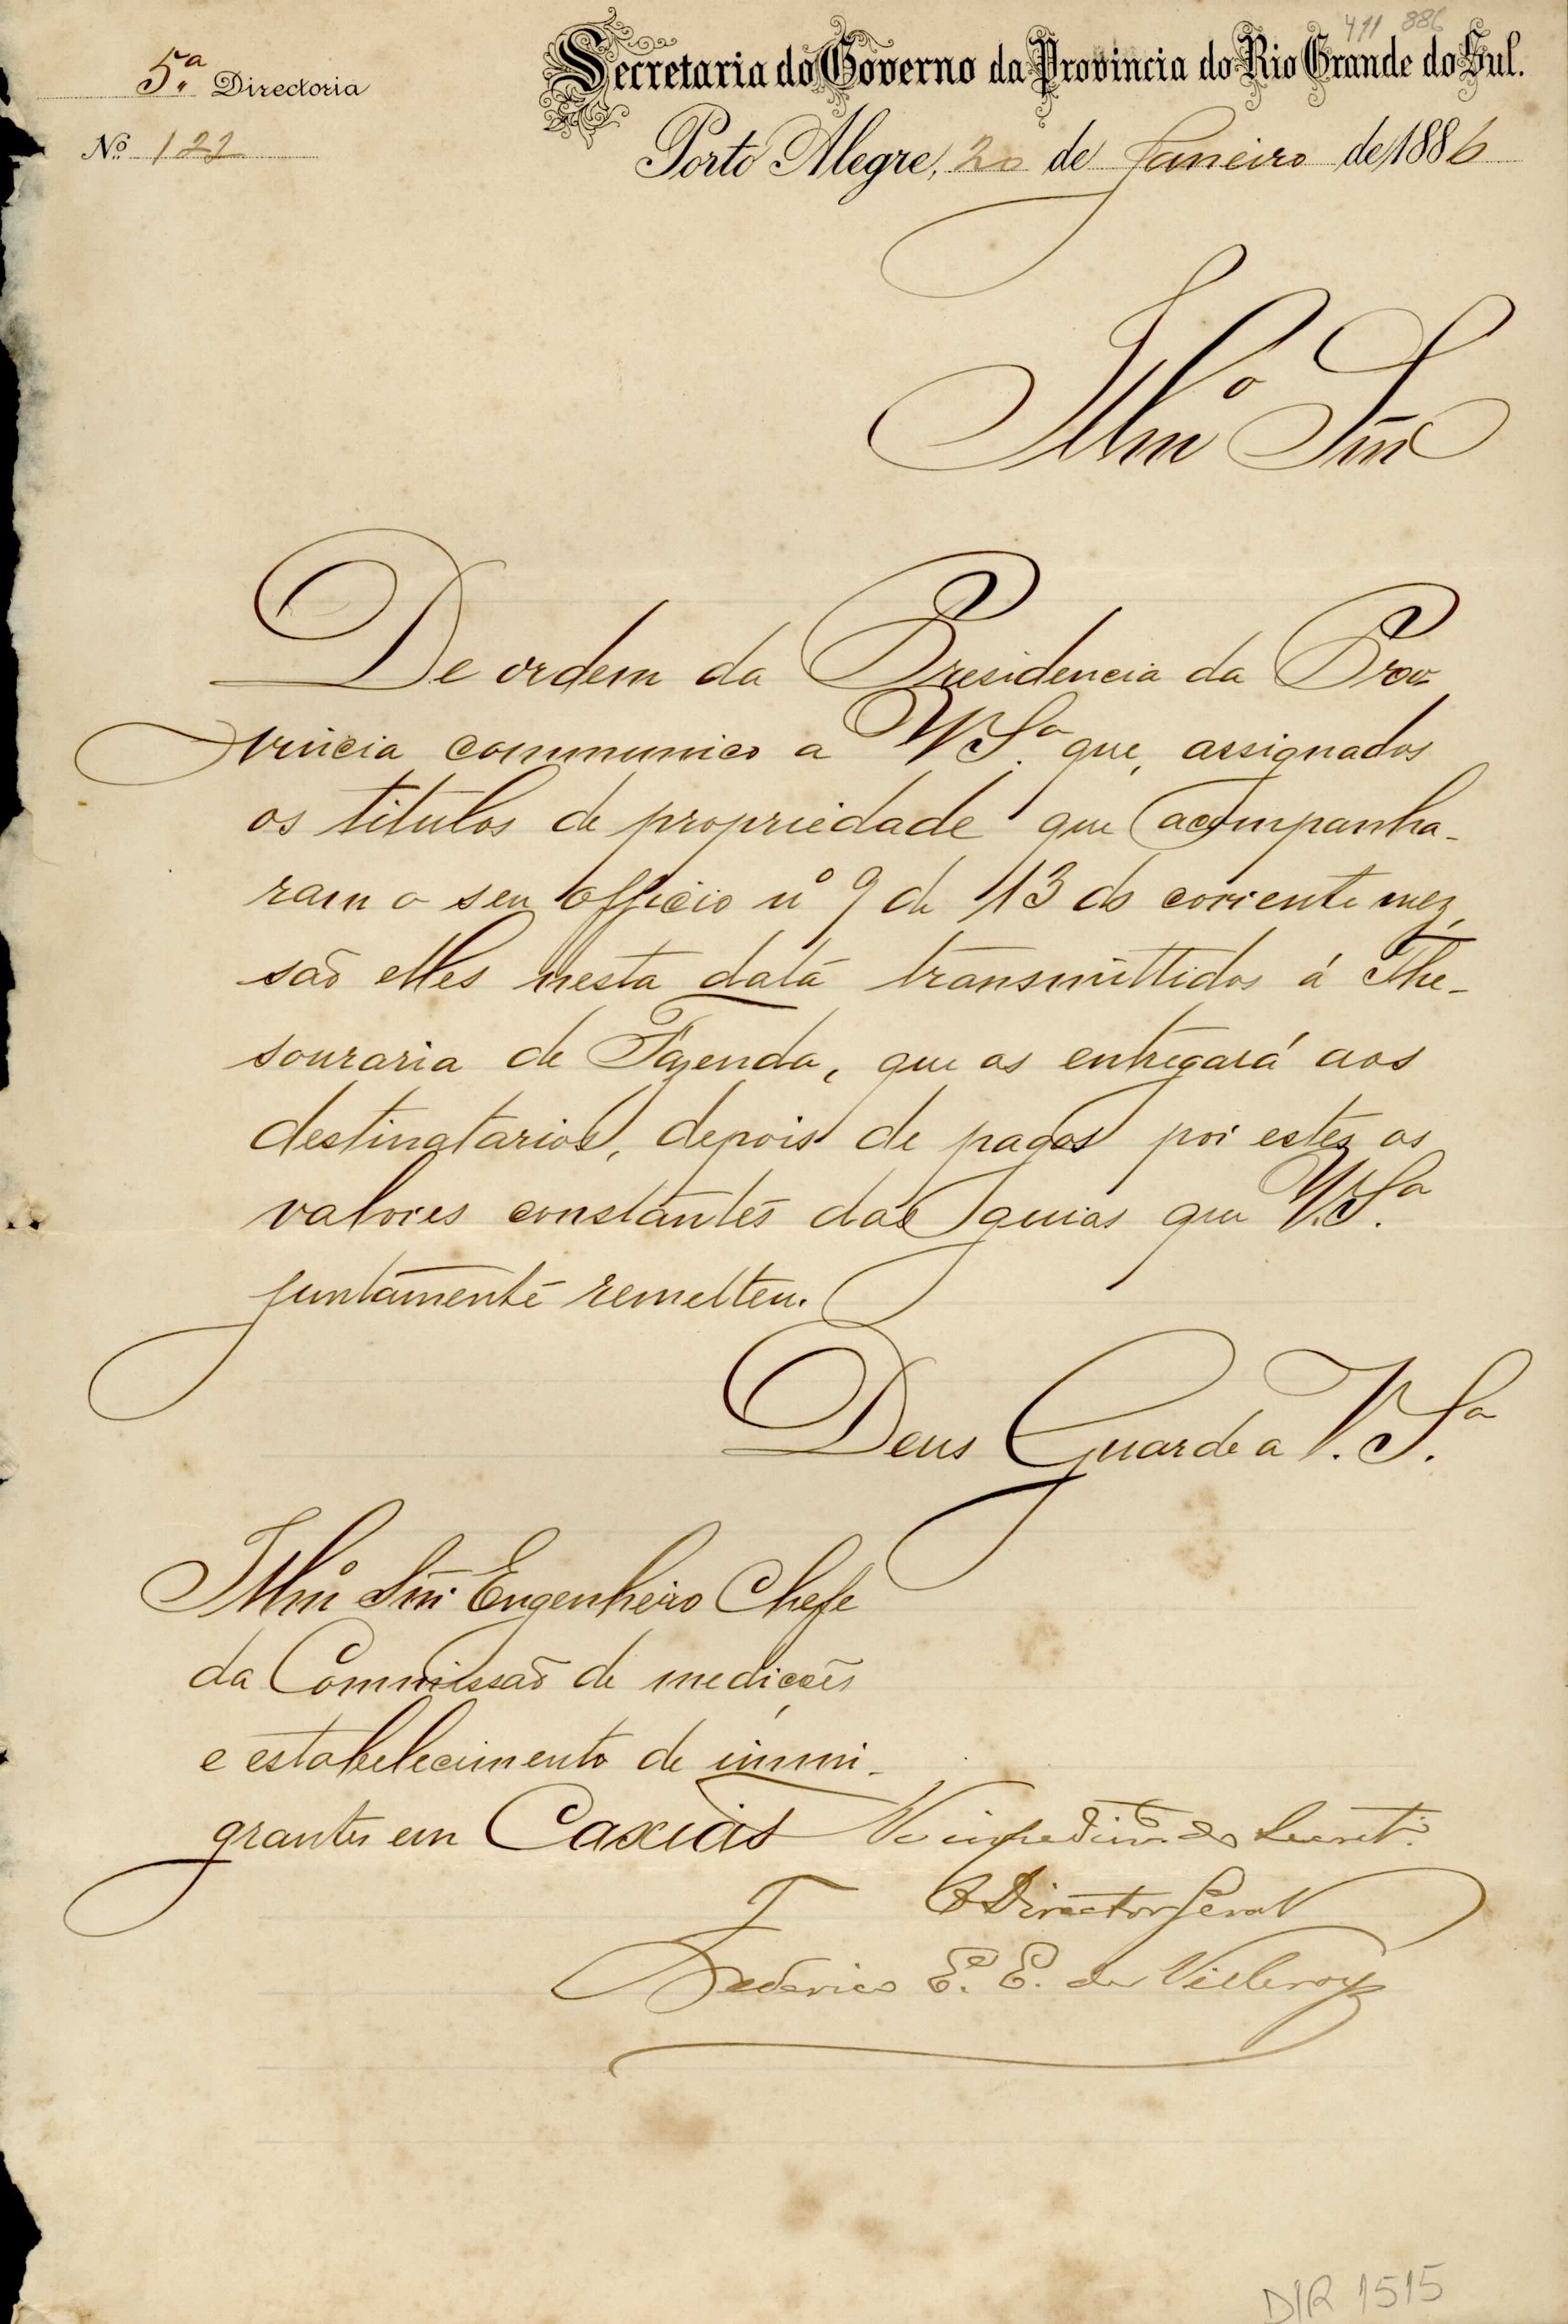 411 886
5.ª Directoria
Secretaria do Governo da Provincia do Rio Grande do Sul.
Nº 122
Porto Alegre, 20 de Janeiro de 1886
Illmº Snr
De ordem da Presidencia da Pro-
vincia communico a V. Sª que, assignados
os titulos de propriedade que acompanha-
ram o seu officio nº 9 de 13 do corrente mez,
são elles nesta data transmittidos á The-
souraria de Fazenda, que os entregará aos
destinatarios, depois de pagos por estes os
valores constantes das guias que V. Sª
juntamente remetteu.
Deus Guarde a V. Sª.
Illmº Snr. Engenheiro Chefe
da Commissão de medições
e estabelecimento de immi-
grantes em Caxias
No impedimto do Secretº
O Director Geral
Frederico E. E. de Villeroy
DIR 1515